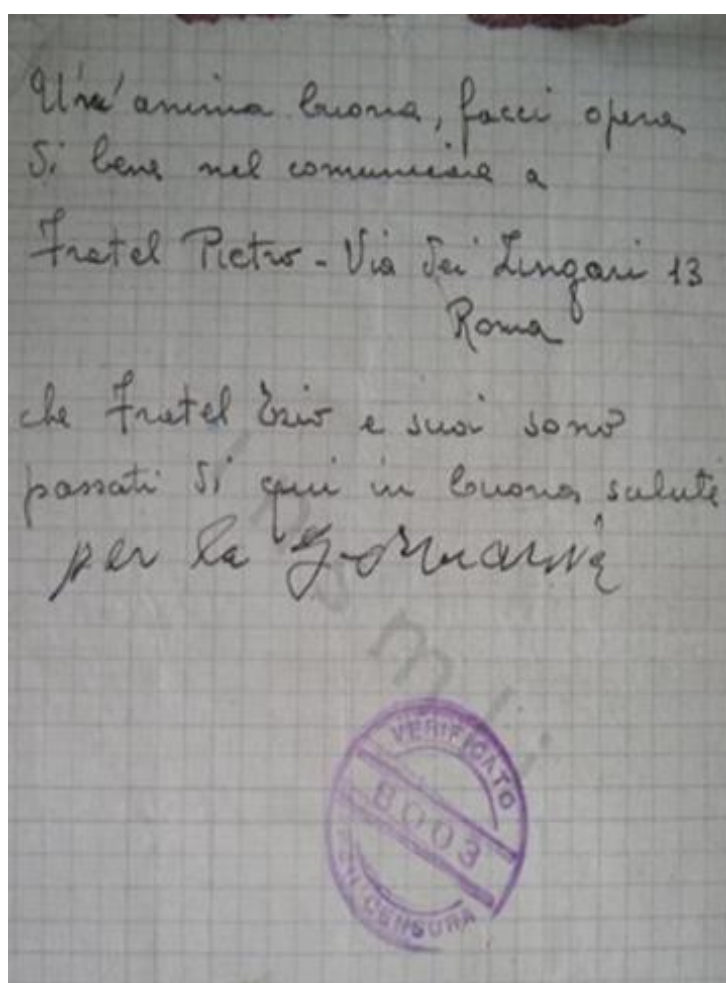 Un'anima buona, facci opera
di bene nel comunicare a
Fratel Pietro - Via dei Zingari 13
Roma
che Fratel Ezio e suoi sono
passati di qui in buona salute
per la Germania
VERIFICATO
8003
CENSURA